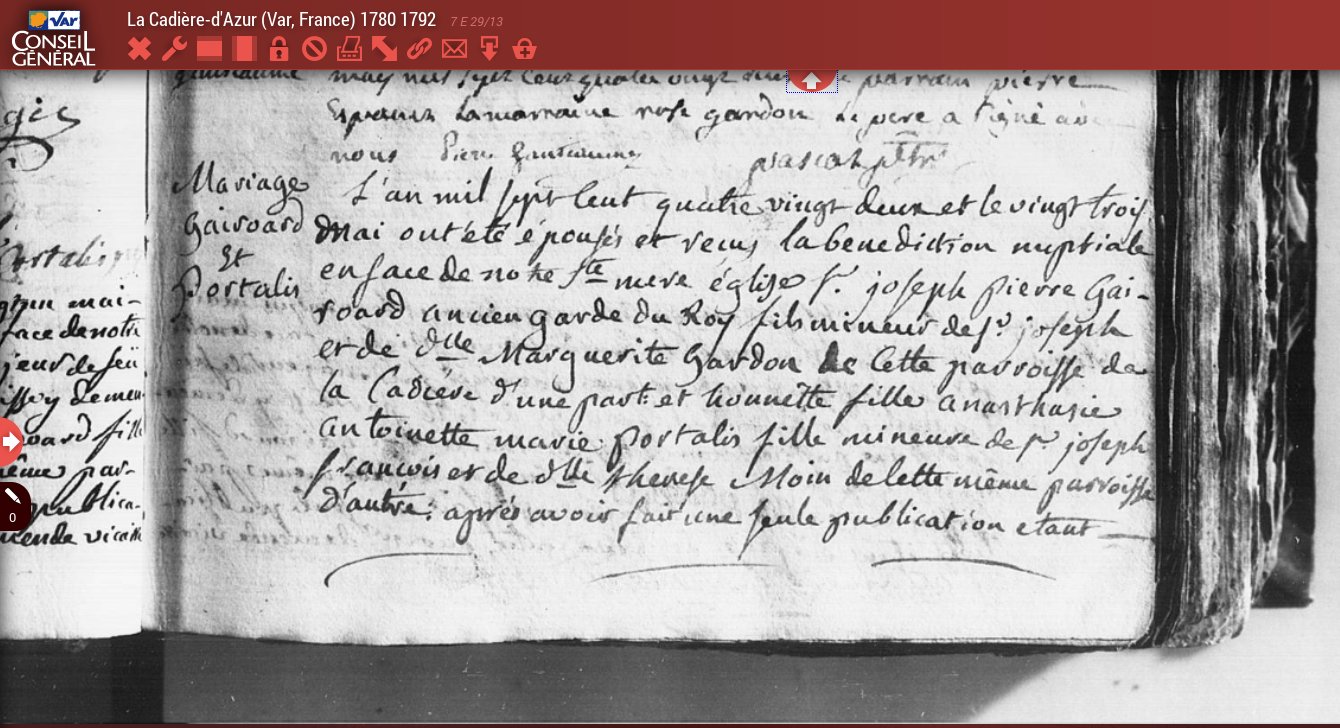 La Cadière-d'Azur (Var, France) 1780 1792 7 E 29/13
VAR
CONSEIL
GÉNÉRAL
guillaume
parrain pierre
la marraine rose gardon le pere a signé avec
nous
pascal ptre
Mariage
Gairoard
Et
Portalis
L'an mil sept cent quatre vingt deux et le vingt trois
Mai ont été épousés et reçus la benediction nuptiale
en face de notre Ste mere église Sr. joseph pierre Gai-
roard ancien garde du Roy fils mineur de Sr. joseph
et de dlle Marguerite Gardon de cette parroisse de
la Cadiére d'une part: et honnette fille anasthasie
antoinette marie portalis fille mineure de Sr joseph
françois et de dlle therese Moin de cette même parroisse
d'autre: aprés avoir fait une seule publication etant
portalis
mai-
face de notre
demeu-
oard fille
même par-
publica-
0